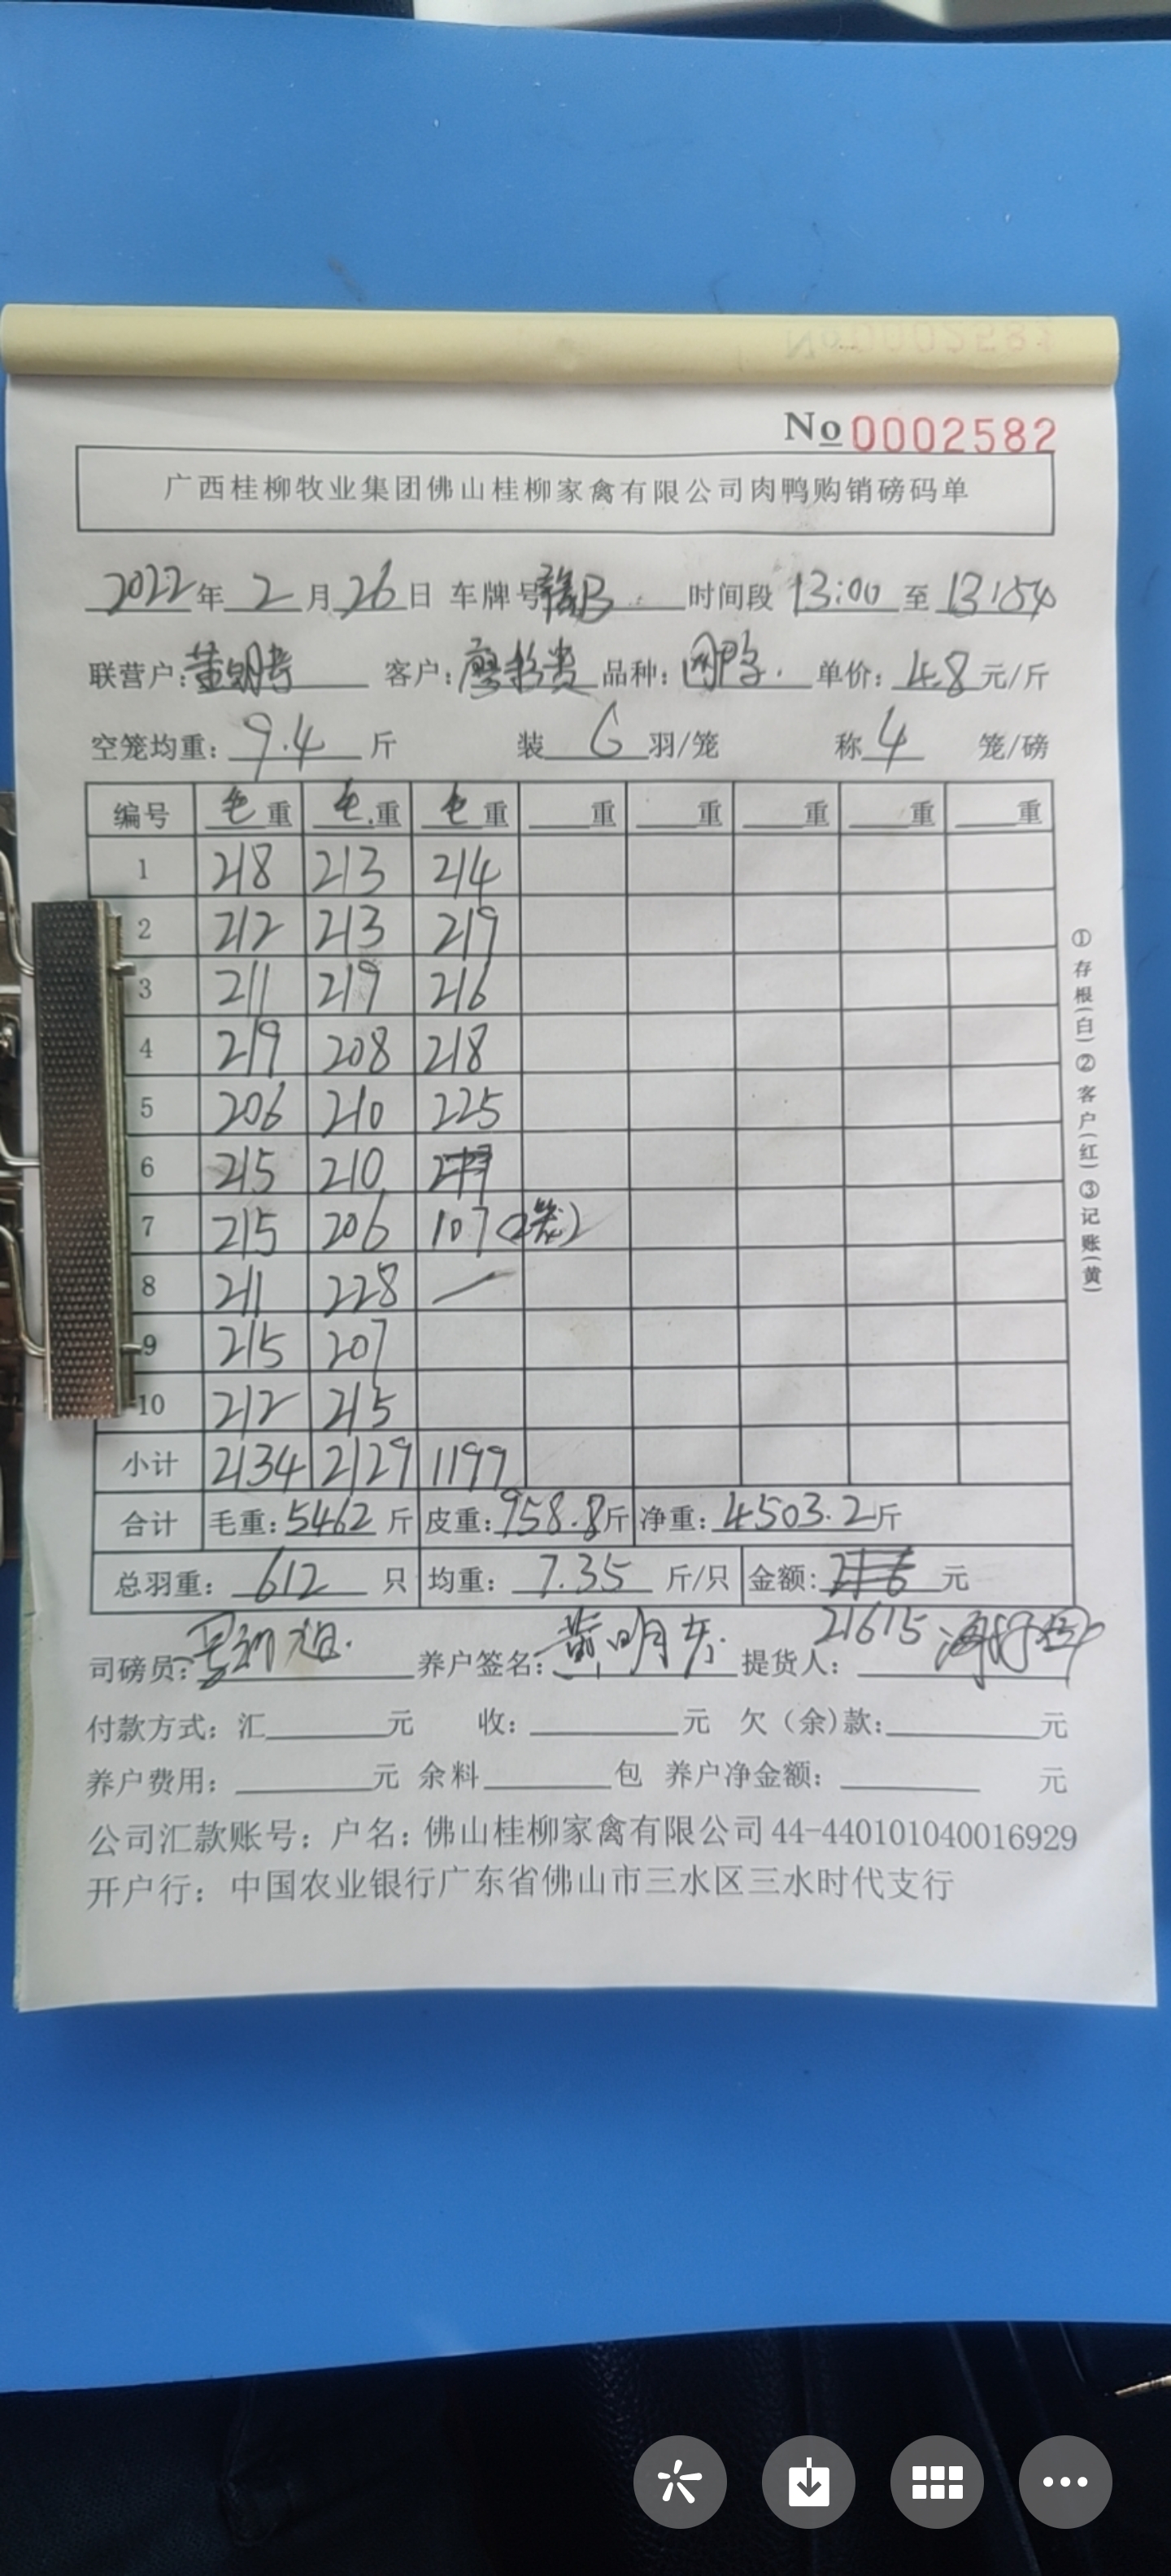 No 0002582
广西桂柳牧业集团佛山桂柳家禽有限公司肉鸭购销磅码单
2022年 2 月 26 日 车牌号 时间段 13:00 至 13:54
联营户: 客户: 品种: 肉鸭 单价: 4.8 元/斤
空笼均重: 9.4 斤 装 6 羽/笼 称 4 笼/磅
编号 毛重 毛重 毛重 重 重 重 重 重
1 218 213 214
2 212 213 219
3 211 219 216
4 219 208 218
5 206 210 225
6 215 210
7 215 206 107(2笼)
8 211 228 —
9 215 207
10 212 215
小计 2134 2129 1199
合计 毛重: 5462 斤 皮重: 958.8斤 净重: 4503.2斤
总羽重: 612 只 均重: 7.35 斤/只 金额: 元
21615
司磅员: 养户签名: 黄明东 提货人:
付款方式: 汇 元 收: 元 欠(余)款: 元
养户费用: 元 余料 包 养户净金额: 元
公司汇款账号: 户名: 佛山桂柳家禽有限公司 44-440101040016929
开户行: 中国农业银行广东省佛山市三水区三水时代支行
①存根(白)②客户(红)③记账(黄)